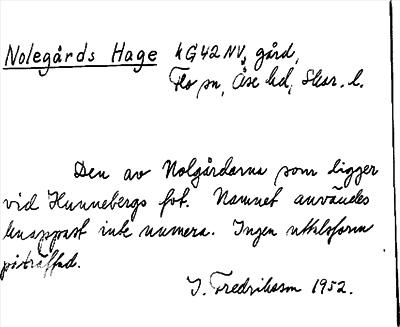 Nolegårds Hage kG42NV, gård,
Flo sn, Åse hd, Skar. l.
Den av Nolgårdarna som ligger
vid Hunnebergs fot. Namnet användes
knappast inte numera. Ingen uttalsform
påträffad.
I. Fredriksson 1952.